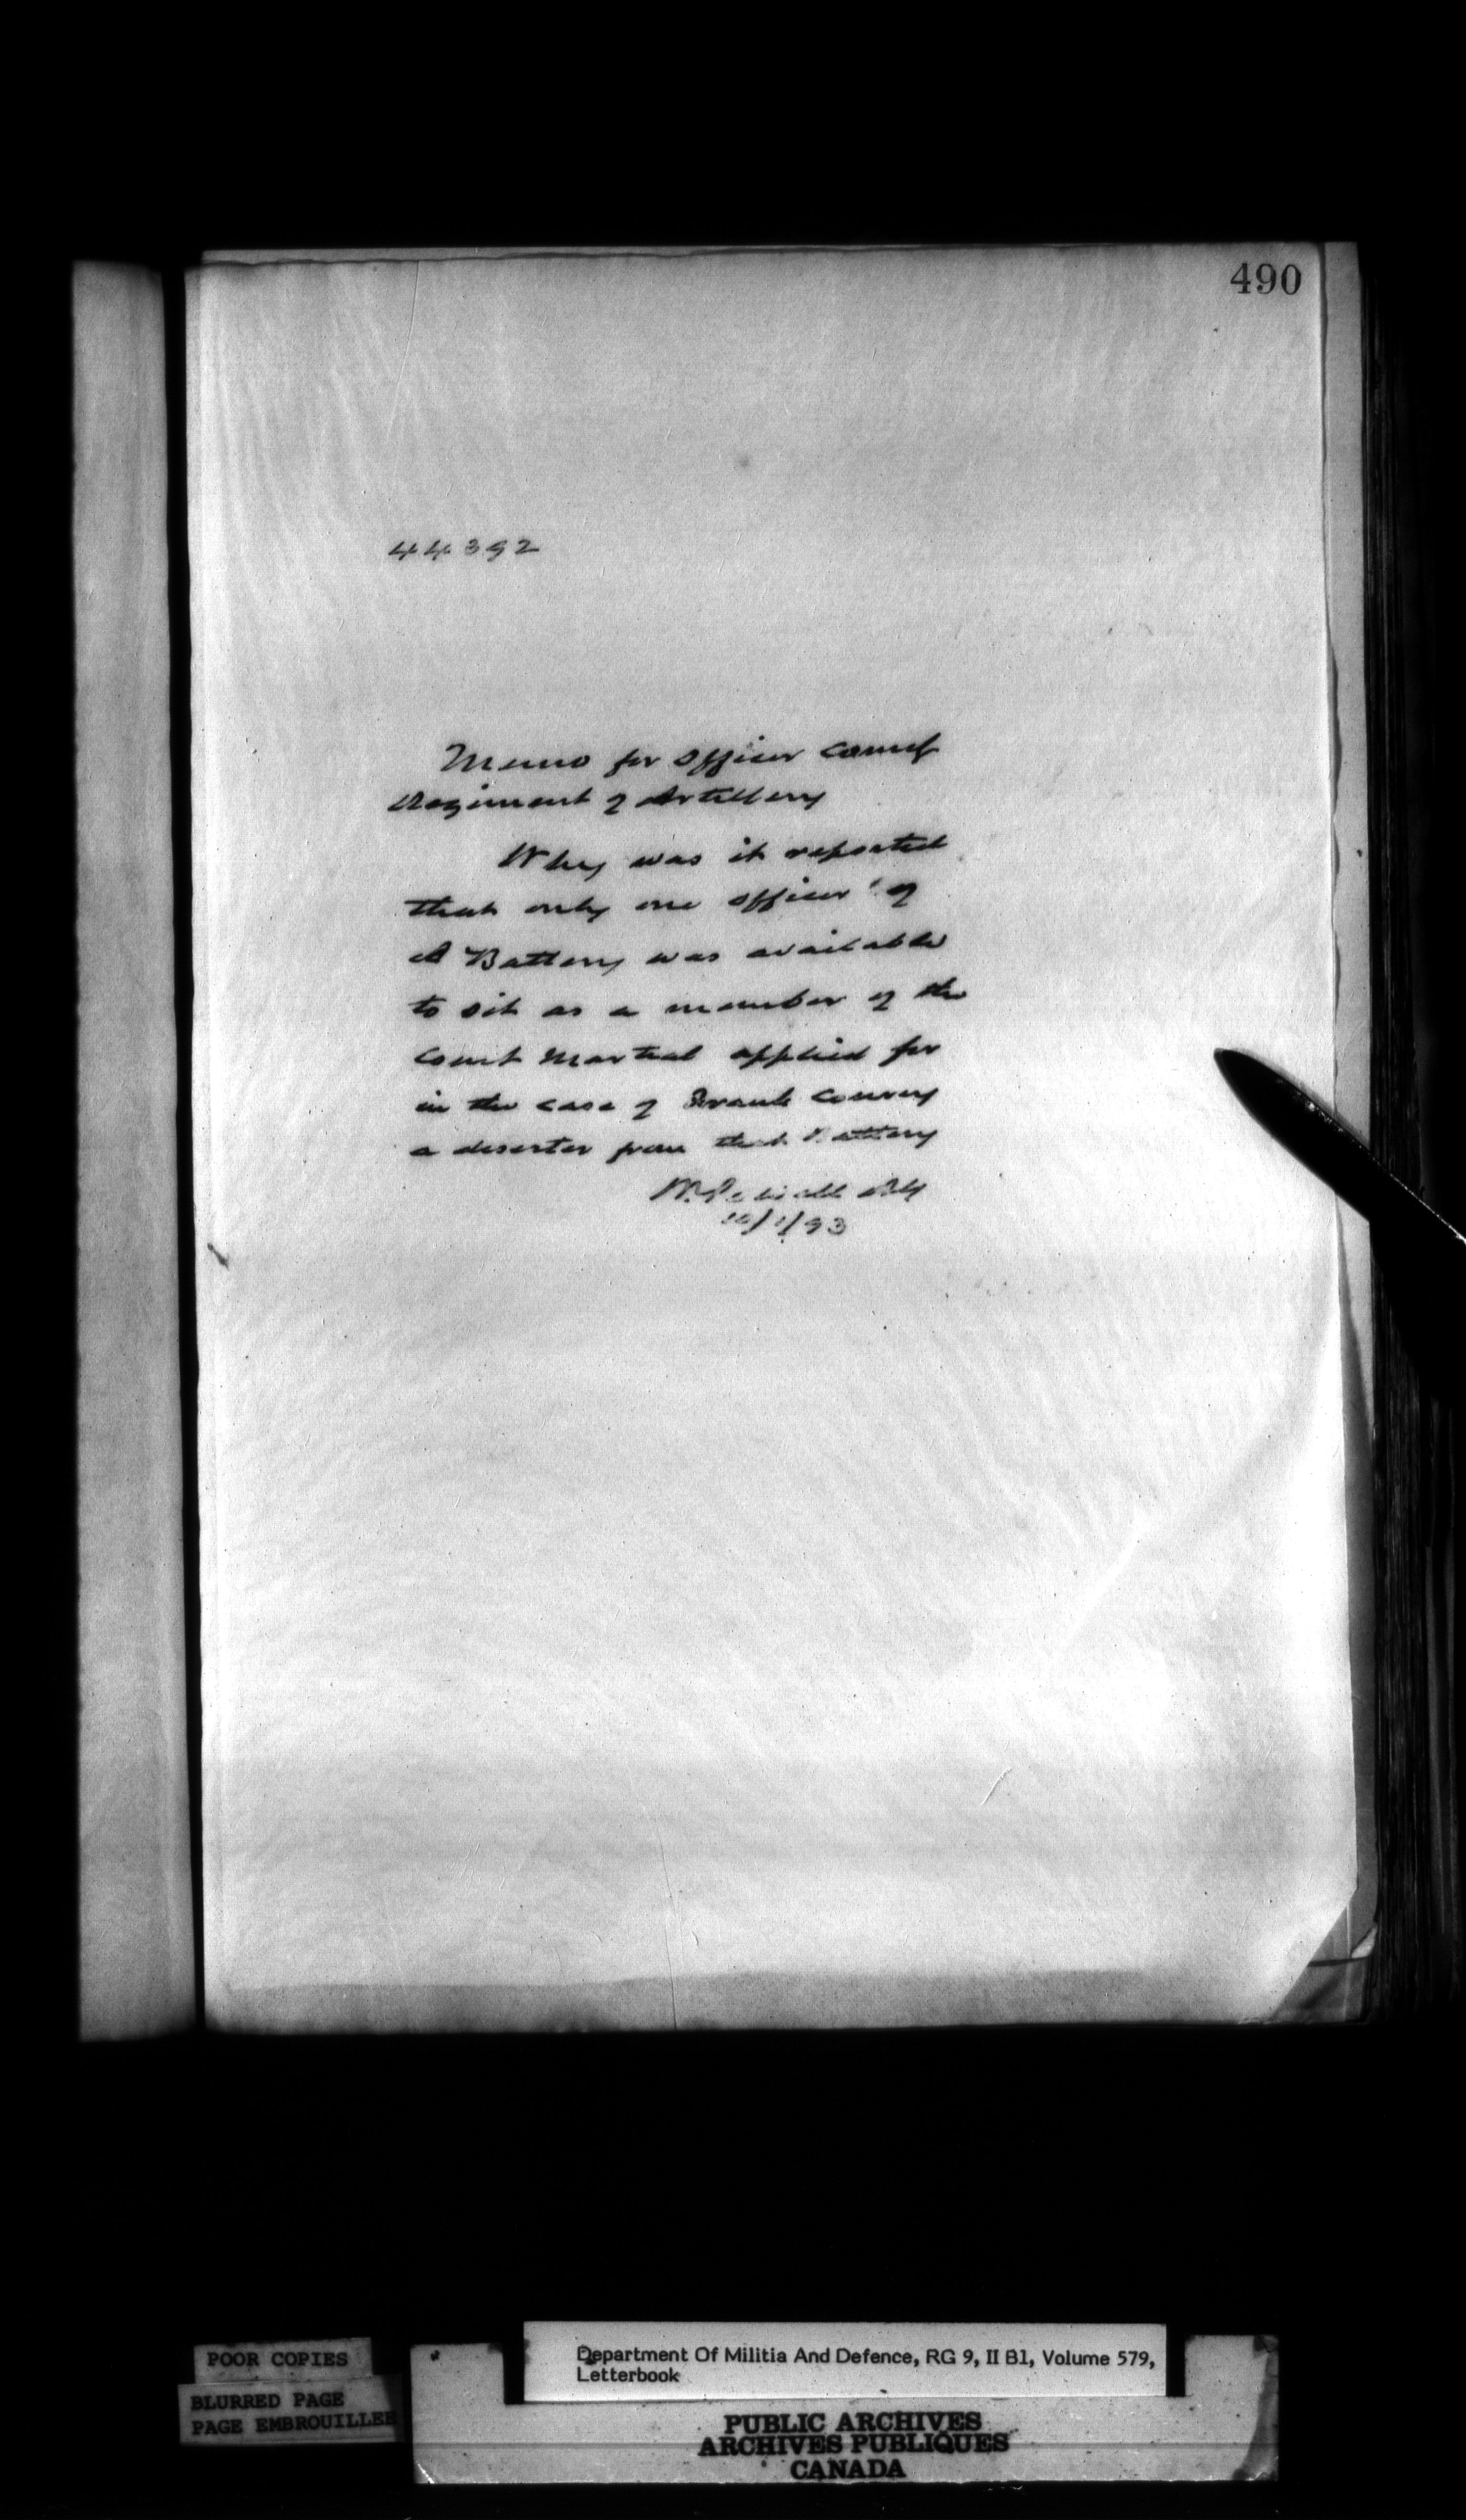 490
44392
Memo for Officer Comdg
Regiment of Artillery
Why was it reported
that only one officer of
A Battery was available
to sit as a member of the
Court Martial applied for
in the case of Frank Conroy
a deserter from that Battery
W. Powell AG
10/1/93
POOR COPIES
BLURRED PAGE
PAGE EMBROUILLEE
Department Of Militia And Defence, RG 9, II B1, Volume 579,
Letterbook
PUBLIC ARCHIVES
ARCHIVES PUBLIQUES
CANADA